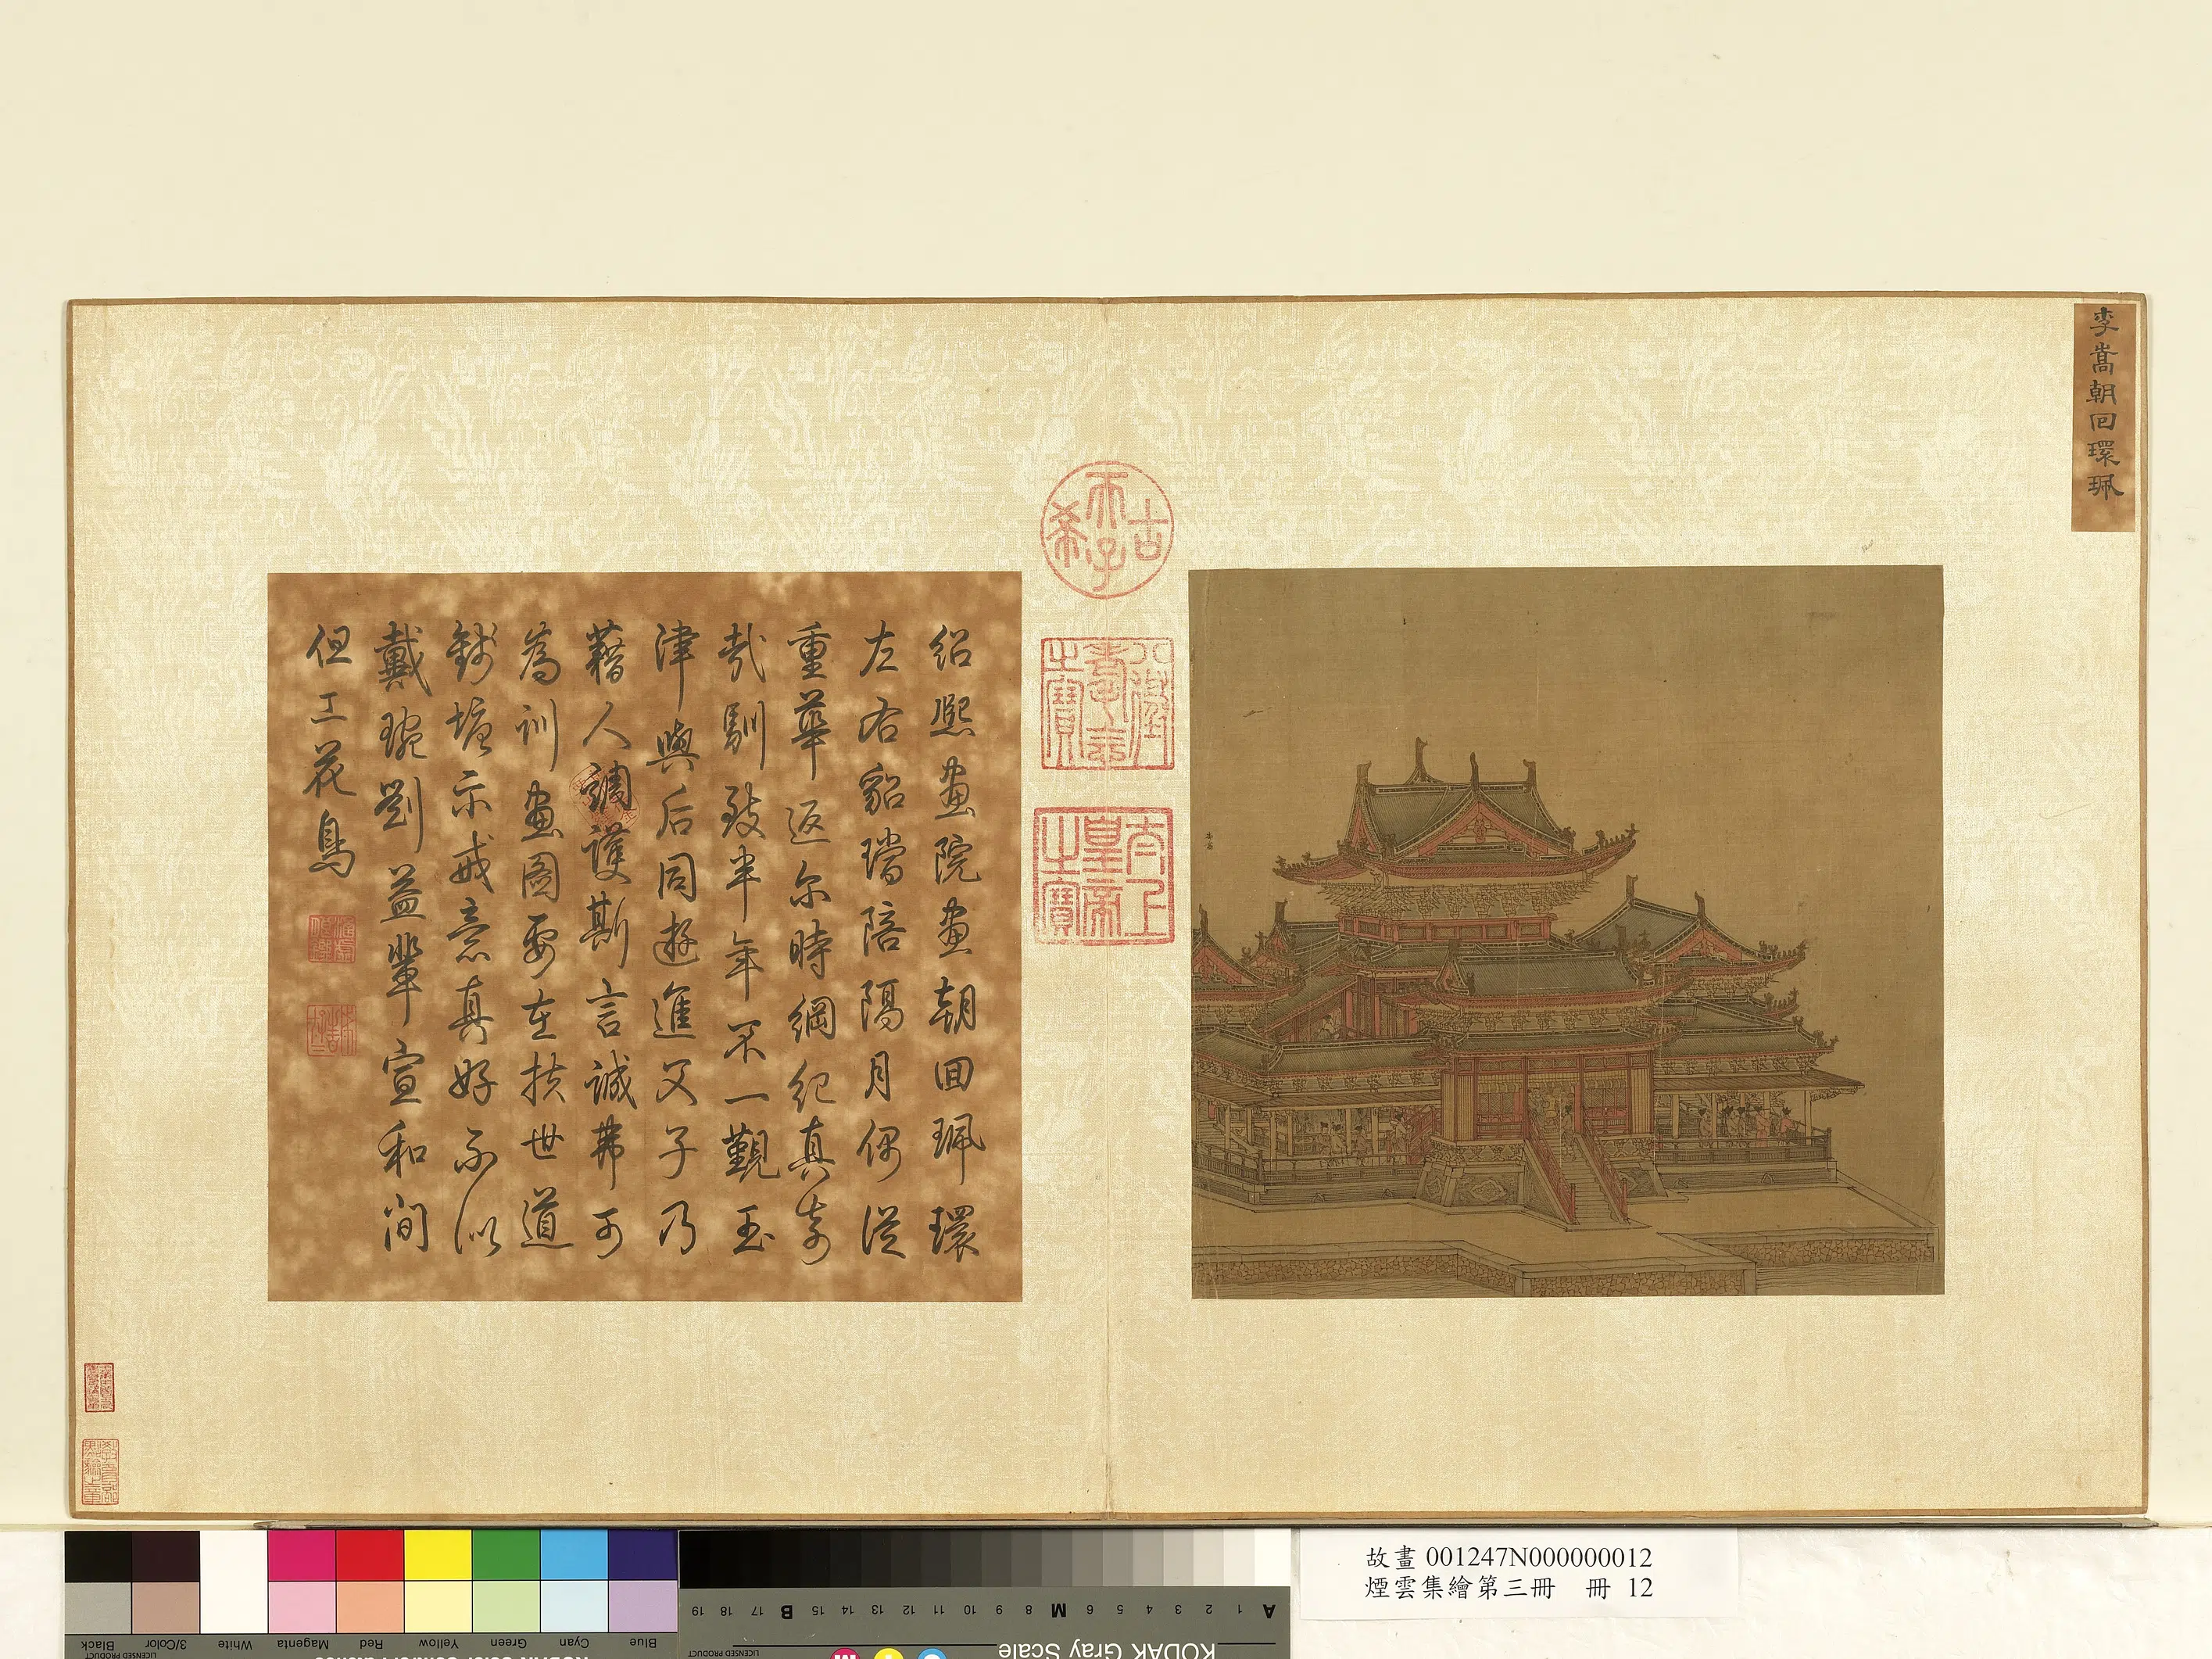 李嵩朝回環珮
古
希
天子
八徵耄念之寶
太上皇帝之寶
李嵩
紹熙畫院畫朝回珮環
左右貂璫陪隔月偶從
重華返尔時綱紀真奇
哉馴致半年不一覲玉
津與后同遊進父子乃
藉人調護斯言誠弗可
為訓畫圖要在扶世道
錢塘示戒意真好不似
戴琬劉益輩宣和間
但工花鳥
故畫 001247N000000012
煙雲集繪第三冊 冊 12
Blue
Cyan
Green
Yellow
Red
Magenta
White
3/Color
Black
LICENSED PRODUCT
KODAK Gray Scale
A 1 2 3 4 5 6 M 8 9 10 11 12 13 14 15 B 17 18 19
LICENSED PRODUCT